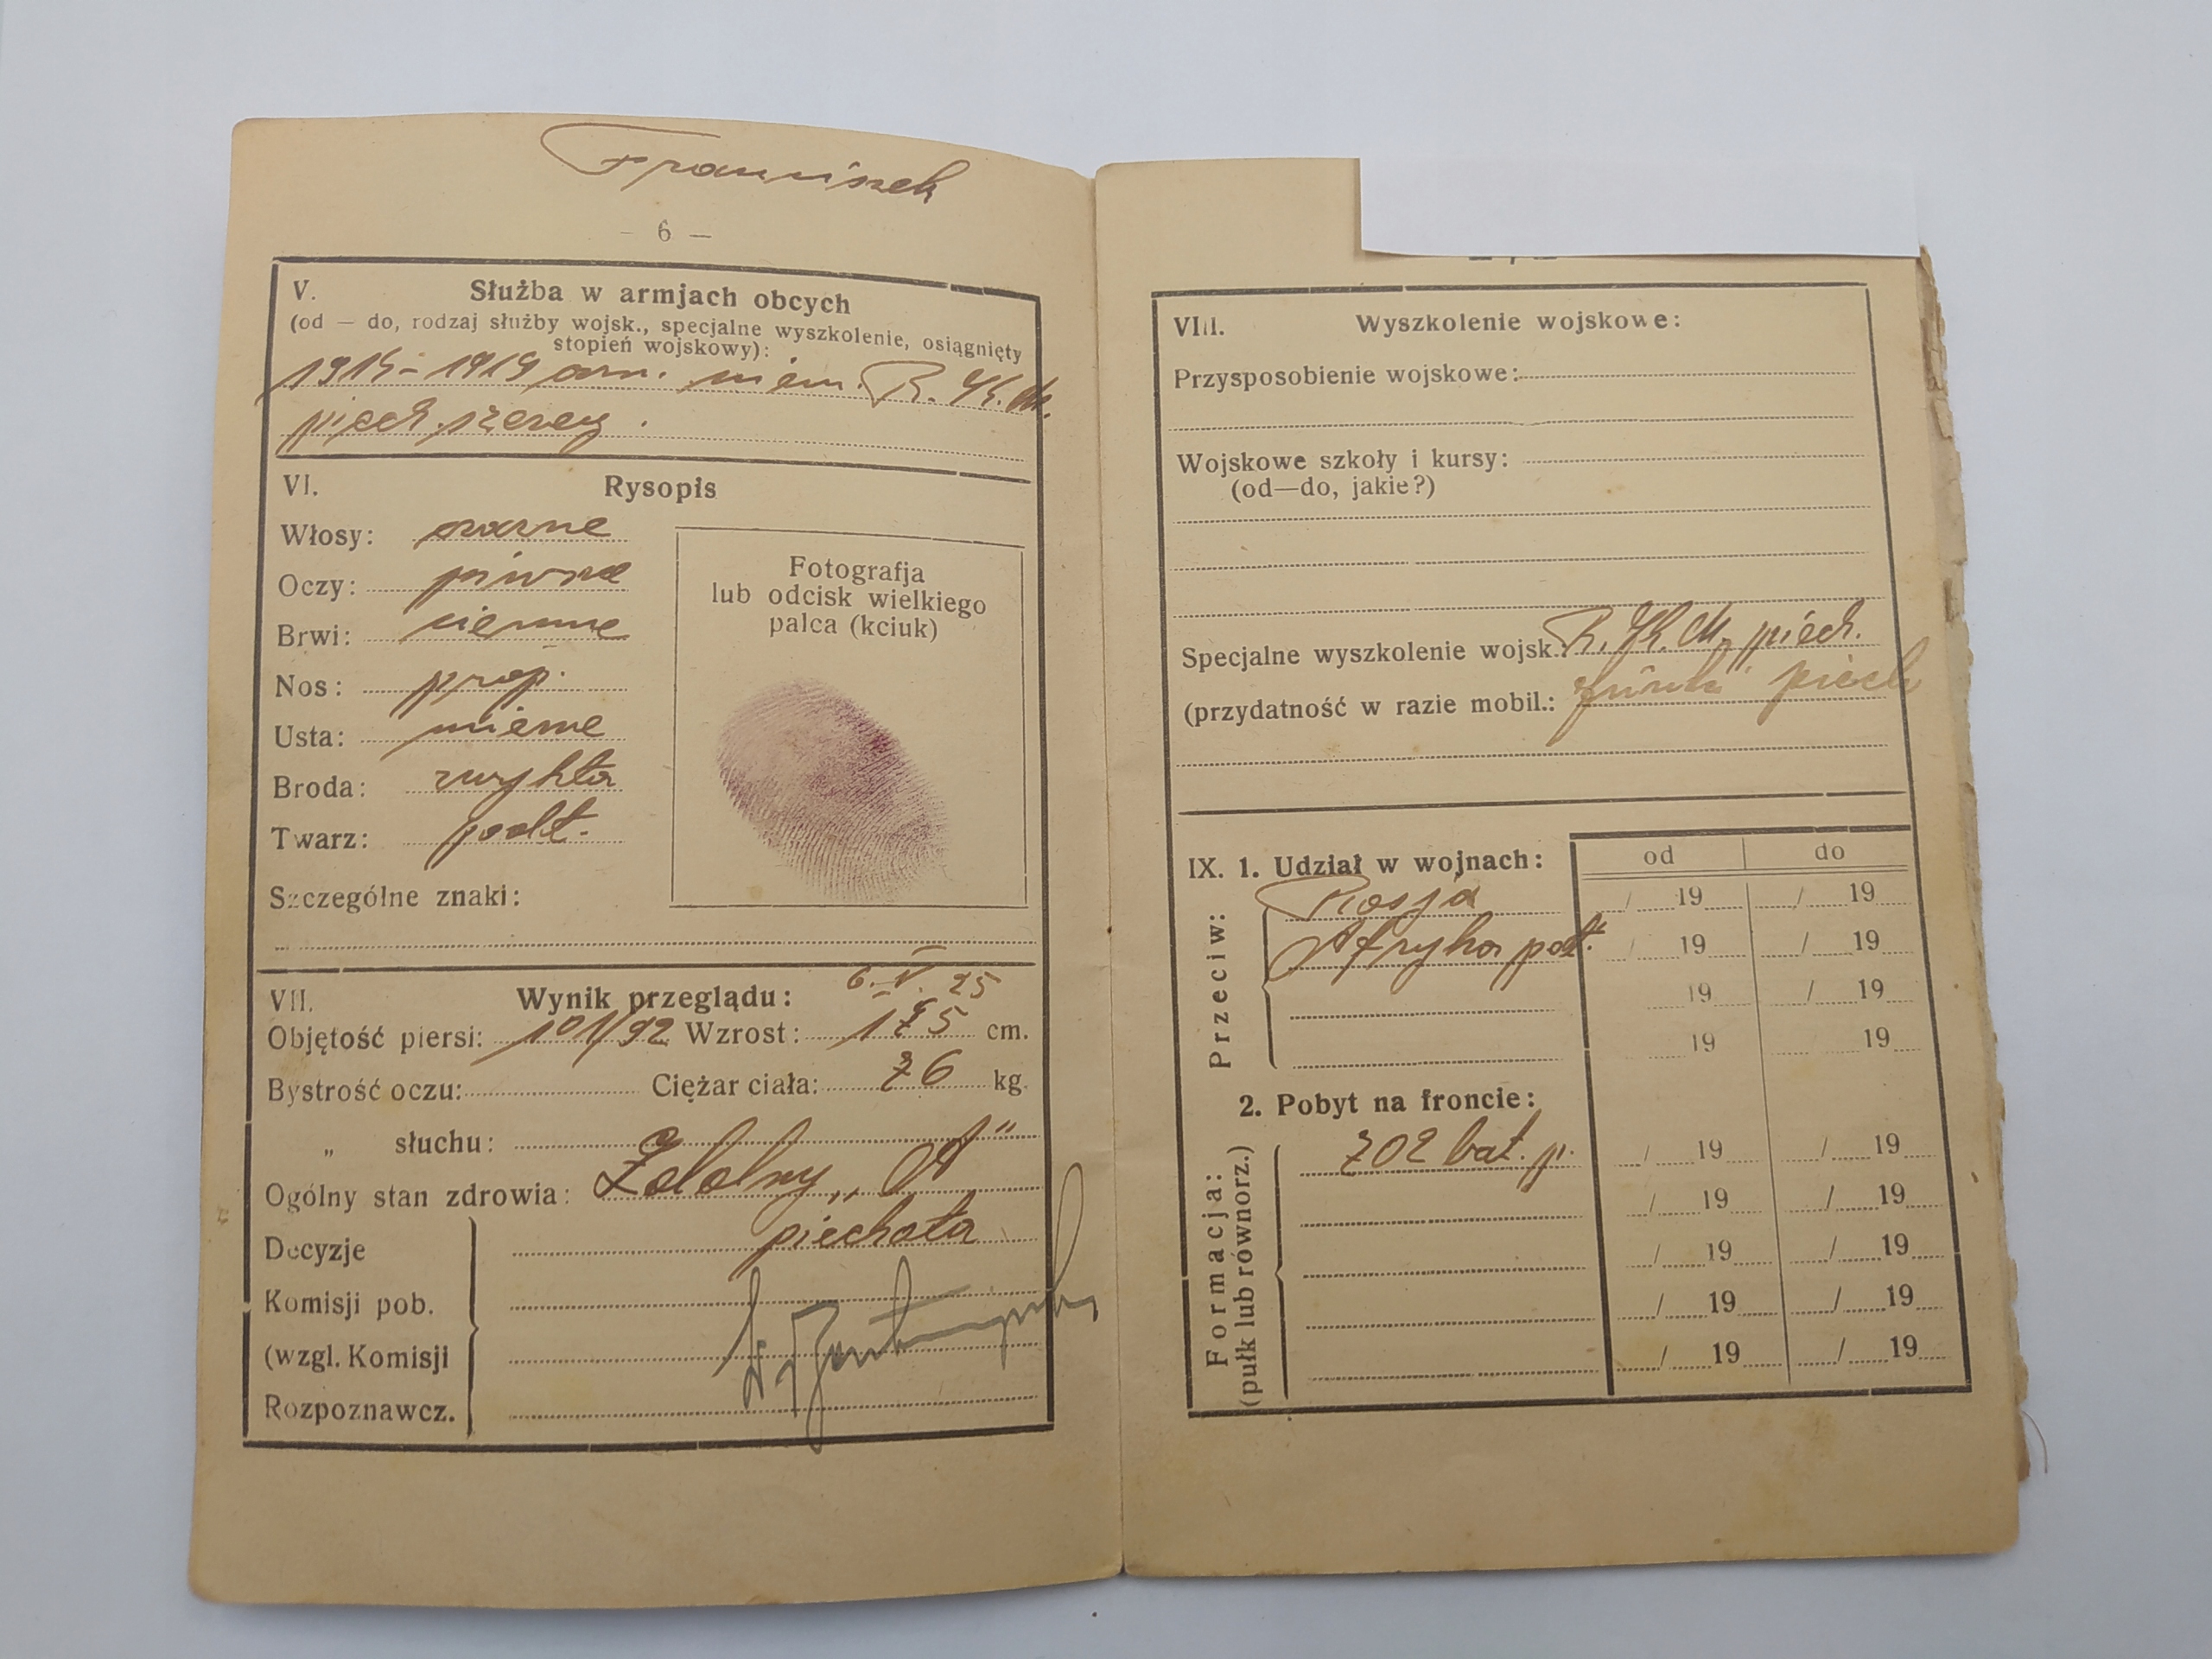 Franciszek
— 6 —
V. Służba w armjach obcych
(od — do, rodzaj służby wojsk., specjalne wyszkolenie, osiągnięty
stopień wojskowy):
1915-1919 arm. niem. R. K. M.
piech. szereg.
VI. Rysopis
Włosy: czarne
Oczy: piwne
Brwi: ciemne
Nos: prop.
Usta: mierne
Broda: zwykła
Twarz: podł.
Fotografja
lub odcisk wielkiego
palca (kciuk)
Szczególne znaki:
VII. Wynik przeglądu: 6. V. 25
Objętość piersi: 101/92 Wzrost: 175 cm.
Bystrość oczu: Ciężar ciała: 76 kg.
„ słuchu:
Ogólny stan zdrowia: Zdolny „A"
piechota
Decyzje
Komisji pob.
(wzgl. Komisji
Rozpoznawcz.
VIII. Wyszkolenie wojskowe:
Przysposobienie wojskowe:
Wojskowe szkoły i kursy:
(od—do, jakie?)
Specjalne wyszkolenie wojsk.: R. K. M. piech.
(przydatność w razie mobil.: piech
IX. 1. Udział w wojnach: od do
Przeciw:
Rosja / 19 / 19
Afryka poł. / 19 / 19
19 / 19
19 19
2. Pobyt na froncie:
Formacja:
(pułk lub równorz.)
702 bat. p. / 19 / 19
/ 19 / 19
/ 19 / 19
/ 19 / 19
/ 19 / 19